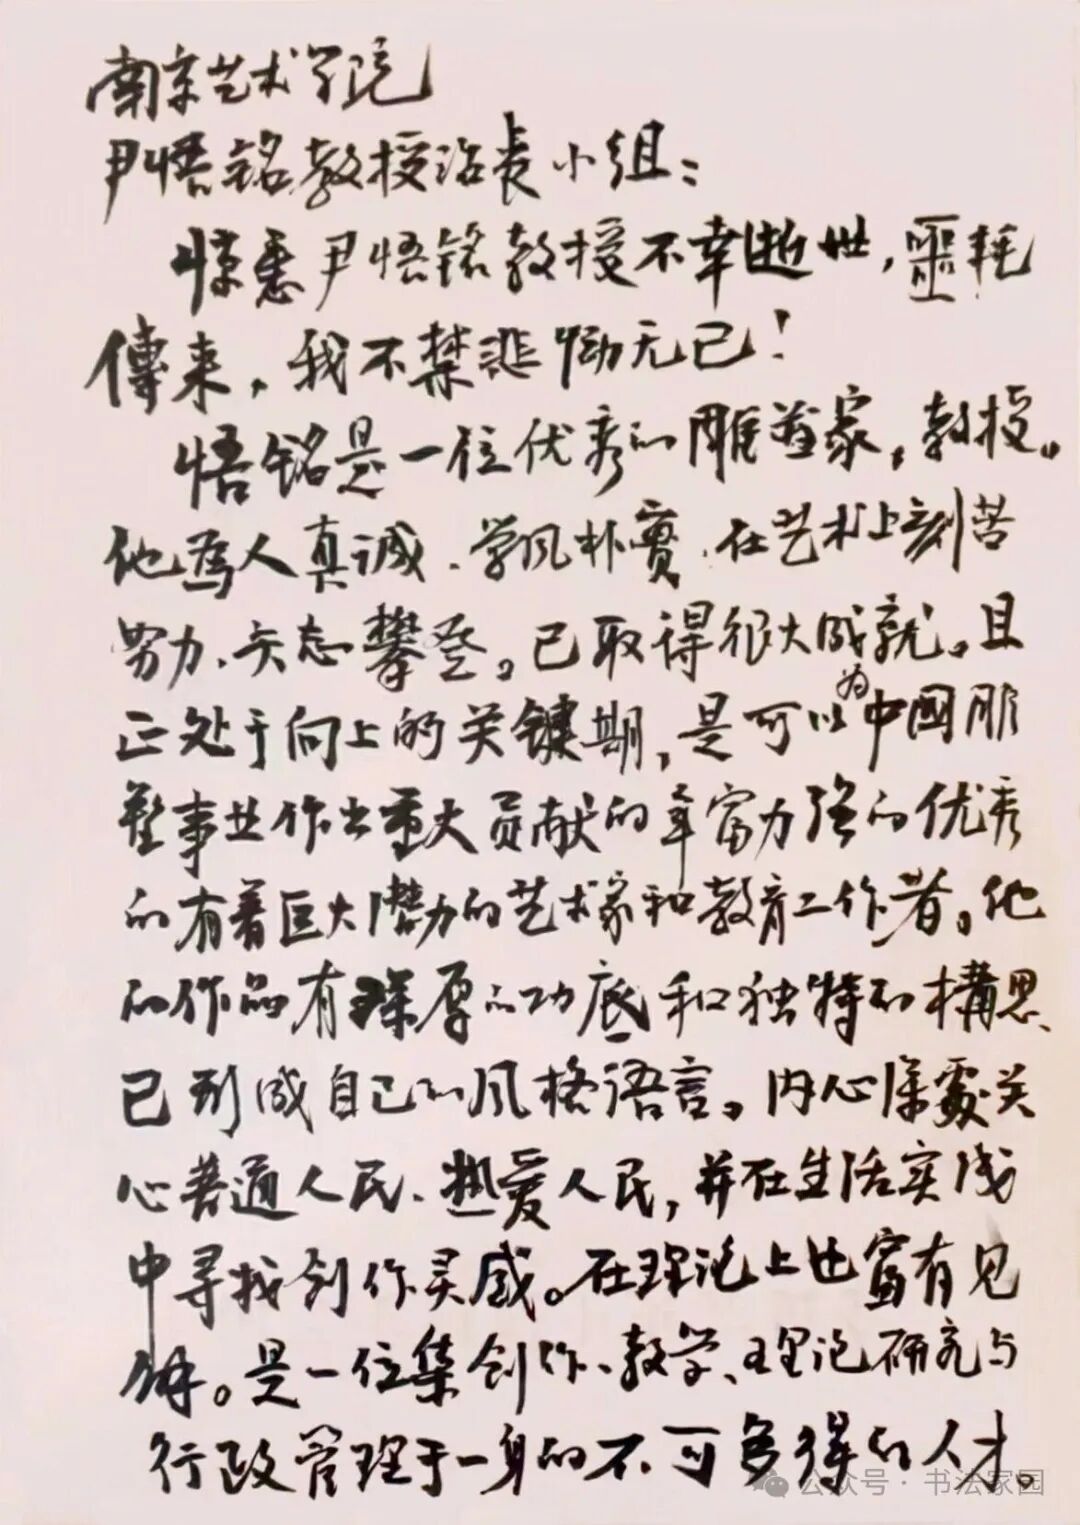 南京艺术学院
尹悟铭教授治丧小组：
惊悉尹悟铭教授不幸逝世，噩耗
傳来，我不禁悲恸无已！
悟铭是一位优秀的雕塑家，教授。
他為人真诚、学风朴實、在艺术上刻苦
努力、矢志攀登。已取得很大成就。且
正处于向上的关键期，是可以为中國雕
塑事业作出重大贡献的年富力强的优秀
的有着巨大潜力的艺术家和教育工作者。他
的作品有深厚的功底和独特的構思、
已形成自己的风格语言。内心深處关
心普通人民、热爱人民，并在生活实践
中寻找创作灵感。在理论上也富有见
解。是一位集创作、教学、理论研究与
行政管理于一身的不可多得的人才。
公众号·书法家园